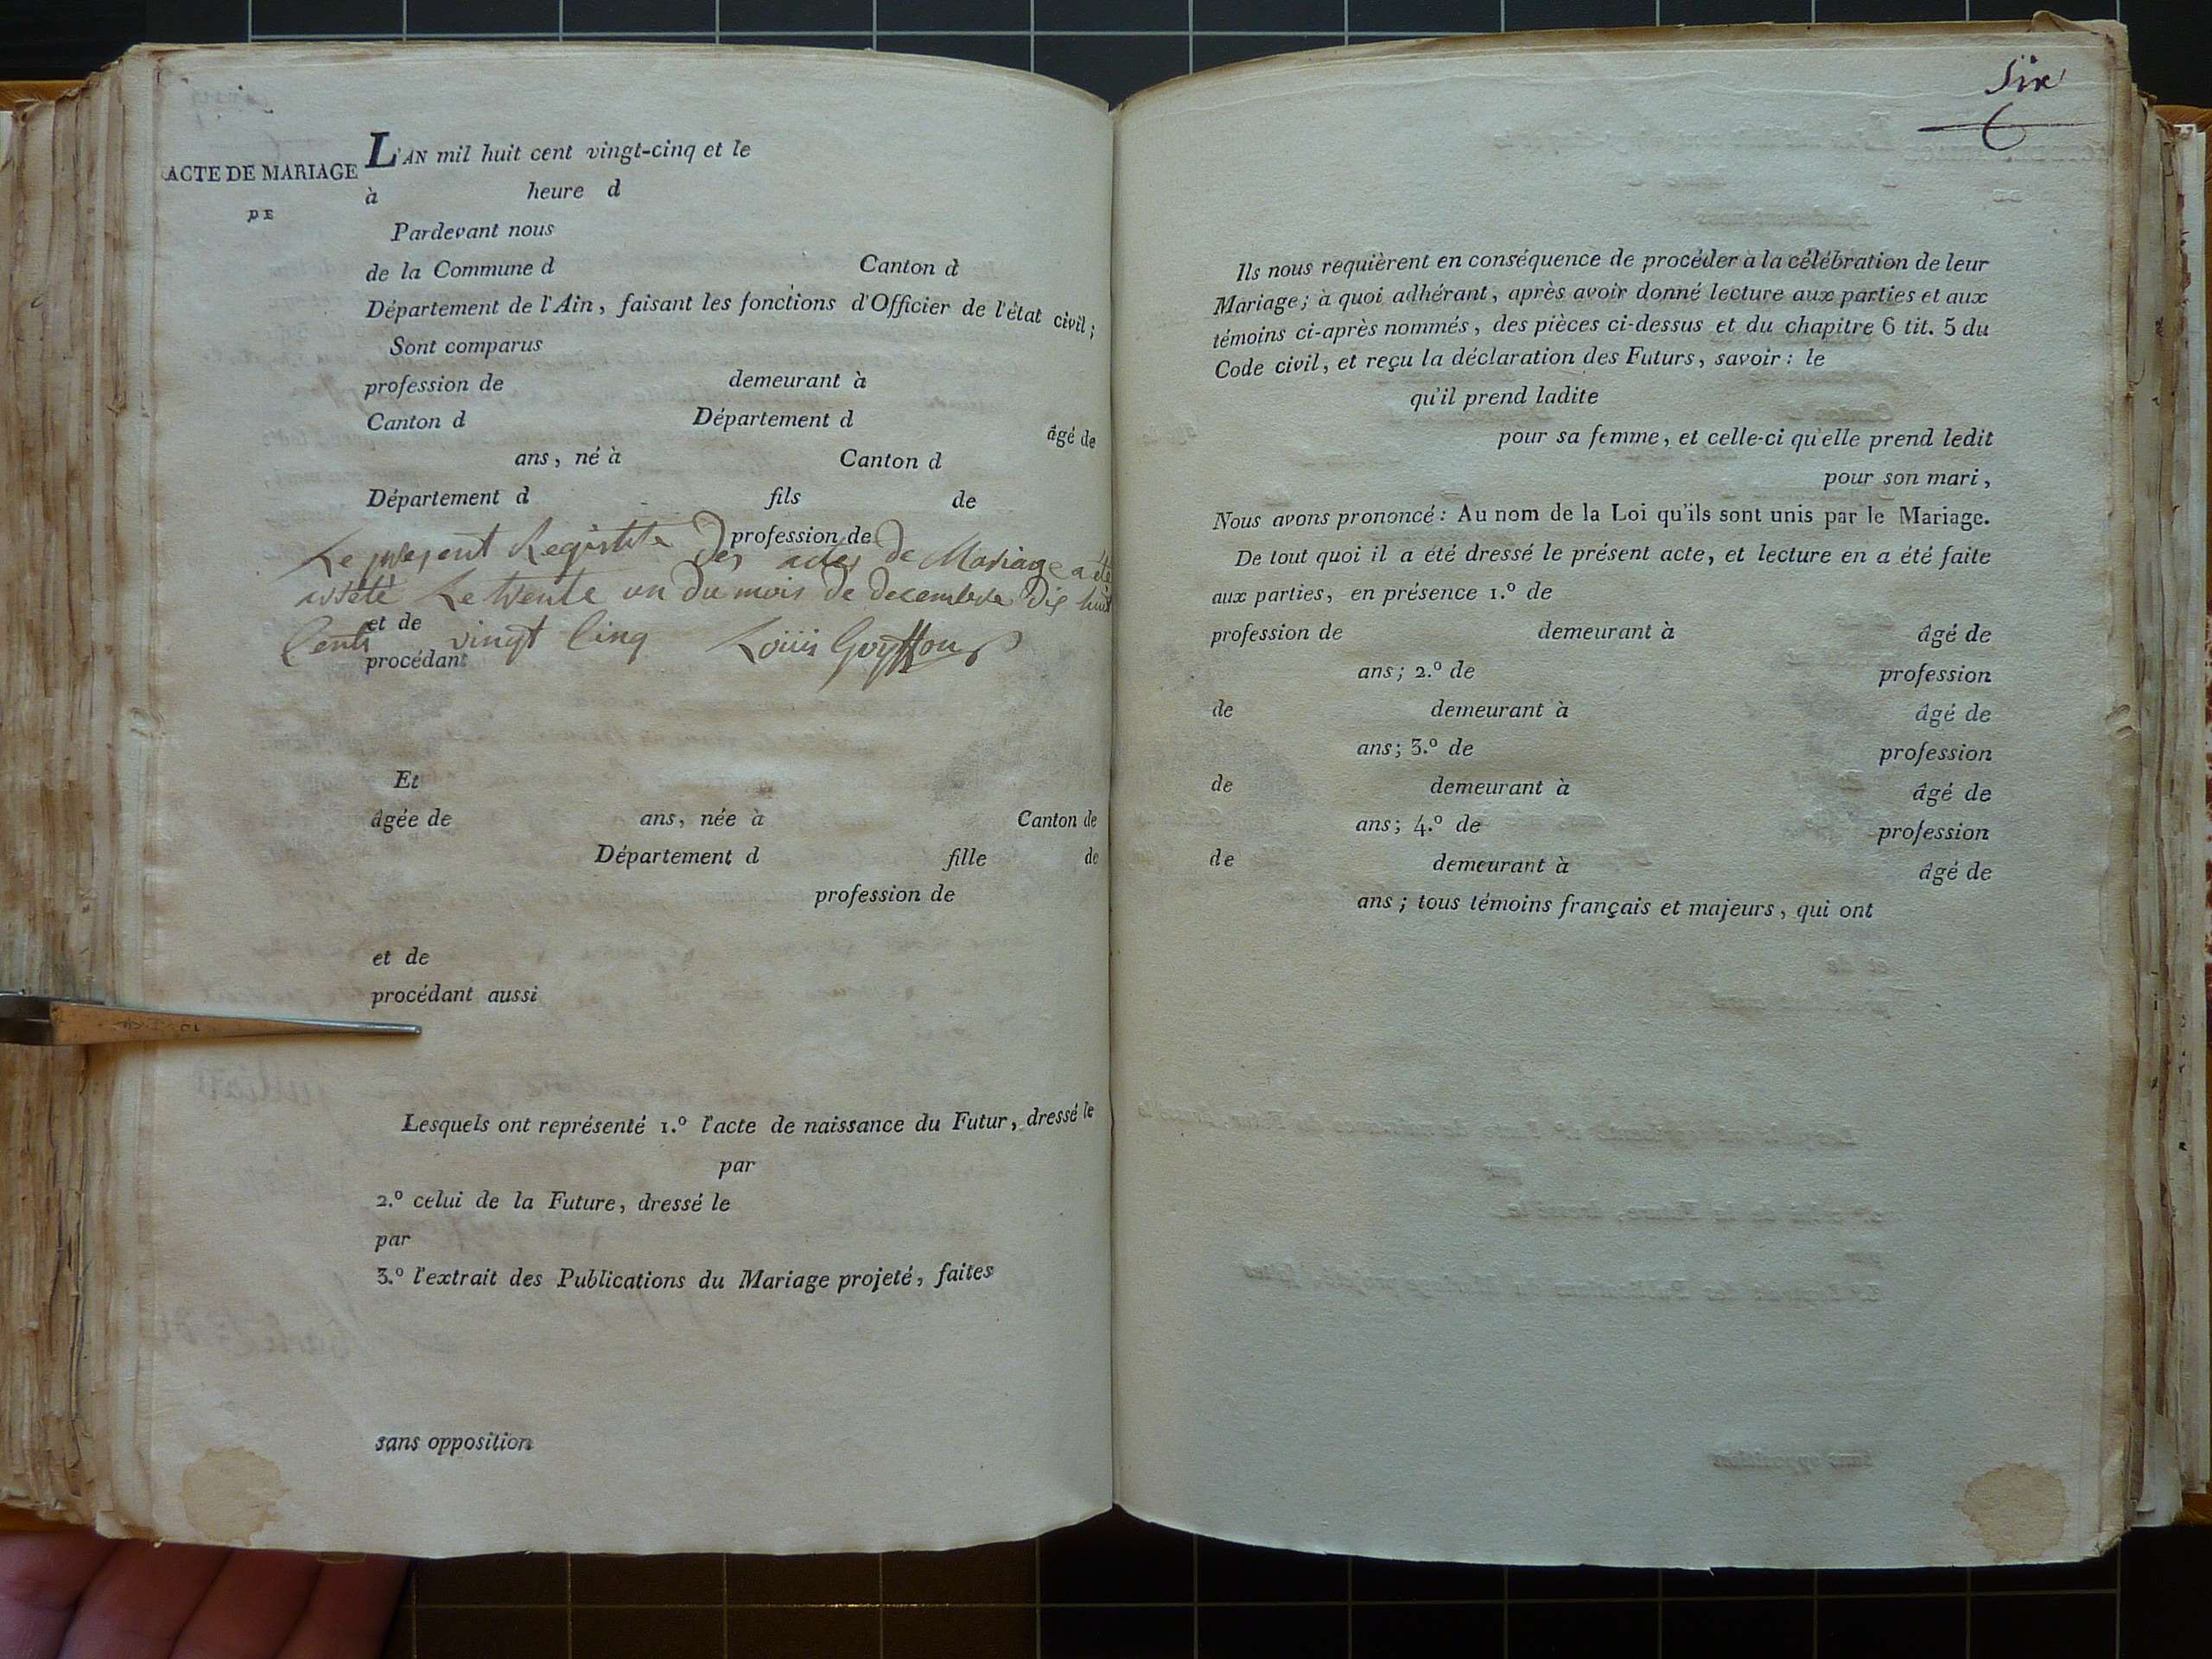 ACTE DE MARIAGE
DE
L'AN mil huit cent vingt-cinq et le
à heure d
Pardevant nous
de la Commune d Canton d
Département de l'Ain, faisant les fonctions d'Officier de l'état civil;
Sont comparus
profession de demeurant à
Canton d Département d âgé de
ans, né à Canton d
Département d fils de
profession de
Le present Registre des actes de Mariage a été
arrêté Le trente un du mois de decembre Dix huit
et de
Cents vingt Cinq Louis Goyffon
procédant
Et
âgée de ans, née à Canton de
Département d fille de
profession de
et de
procédant aussi
Lesquels ont représenté 1.º l'acte de naissance du Futur, dressé le
par
2.º celui de la Future, dressé le
par
3.º l'extrait des Publications du Mariage projeté, faites
sans opposition
Six
6
Ils nous requièrent en conséquence de procéder à la célébration de leur
Mariage; à quoi adhérant, après avoir donné lecture aux parties et aux
témoins ci-après nommés, des pièces ci-dessus et du chapitre 6 tit. 5 du
Code civil, et reçu la déclaration des Futurs, savoir: le
qu'il prend ladite
pour sa femme, et celle-ci qu'elle prend ledit
pour son mari,
Nous avons prononcé: Au nom de la Loi qu'ils sont unis par le Mariage.
De tout quoi il a été dressé le présent acte, et lecture en a été faite
aux parties, en présence 1.º de
profession de demeurant à âgé de
ans; 2.º de profession
de demeurant à âgé de
ans; 3.º de profession
de demeurant à âgé de
ans; 4.º de profession
de demeurant à âgé de
ans; tous témoins français et majeurs, qui ont